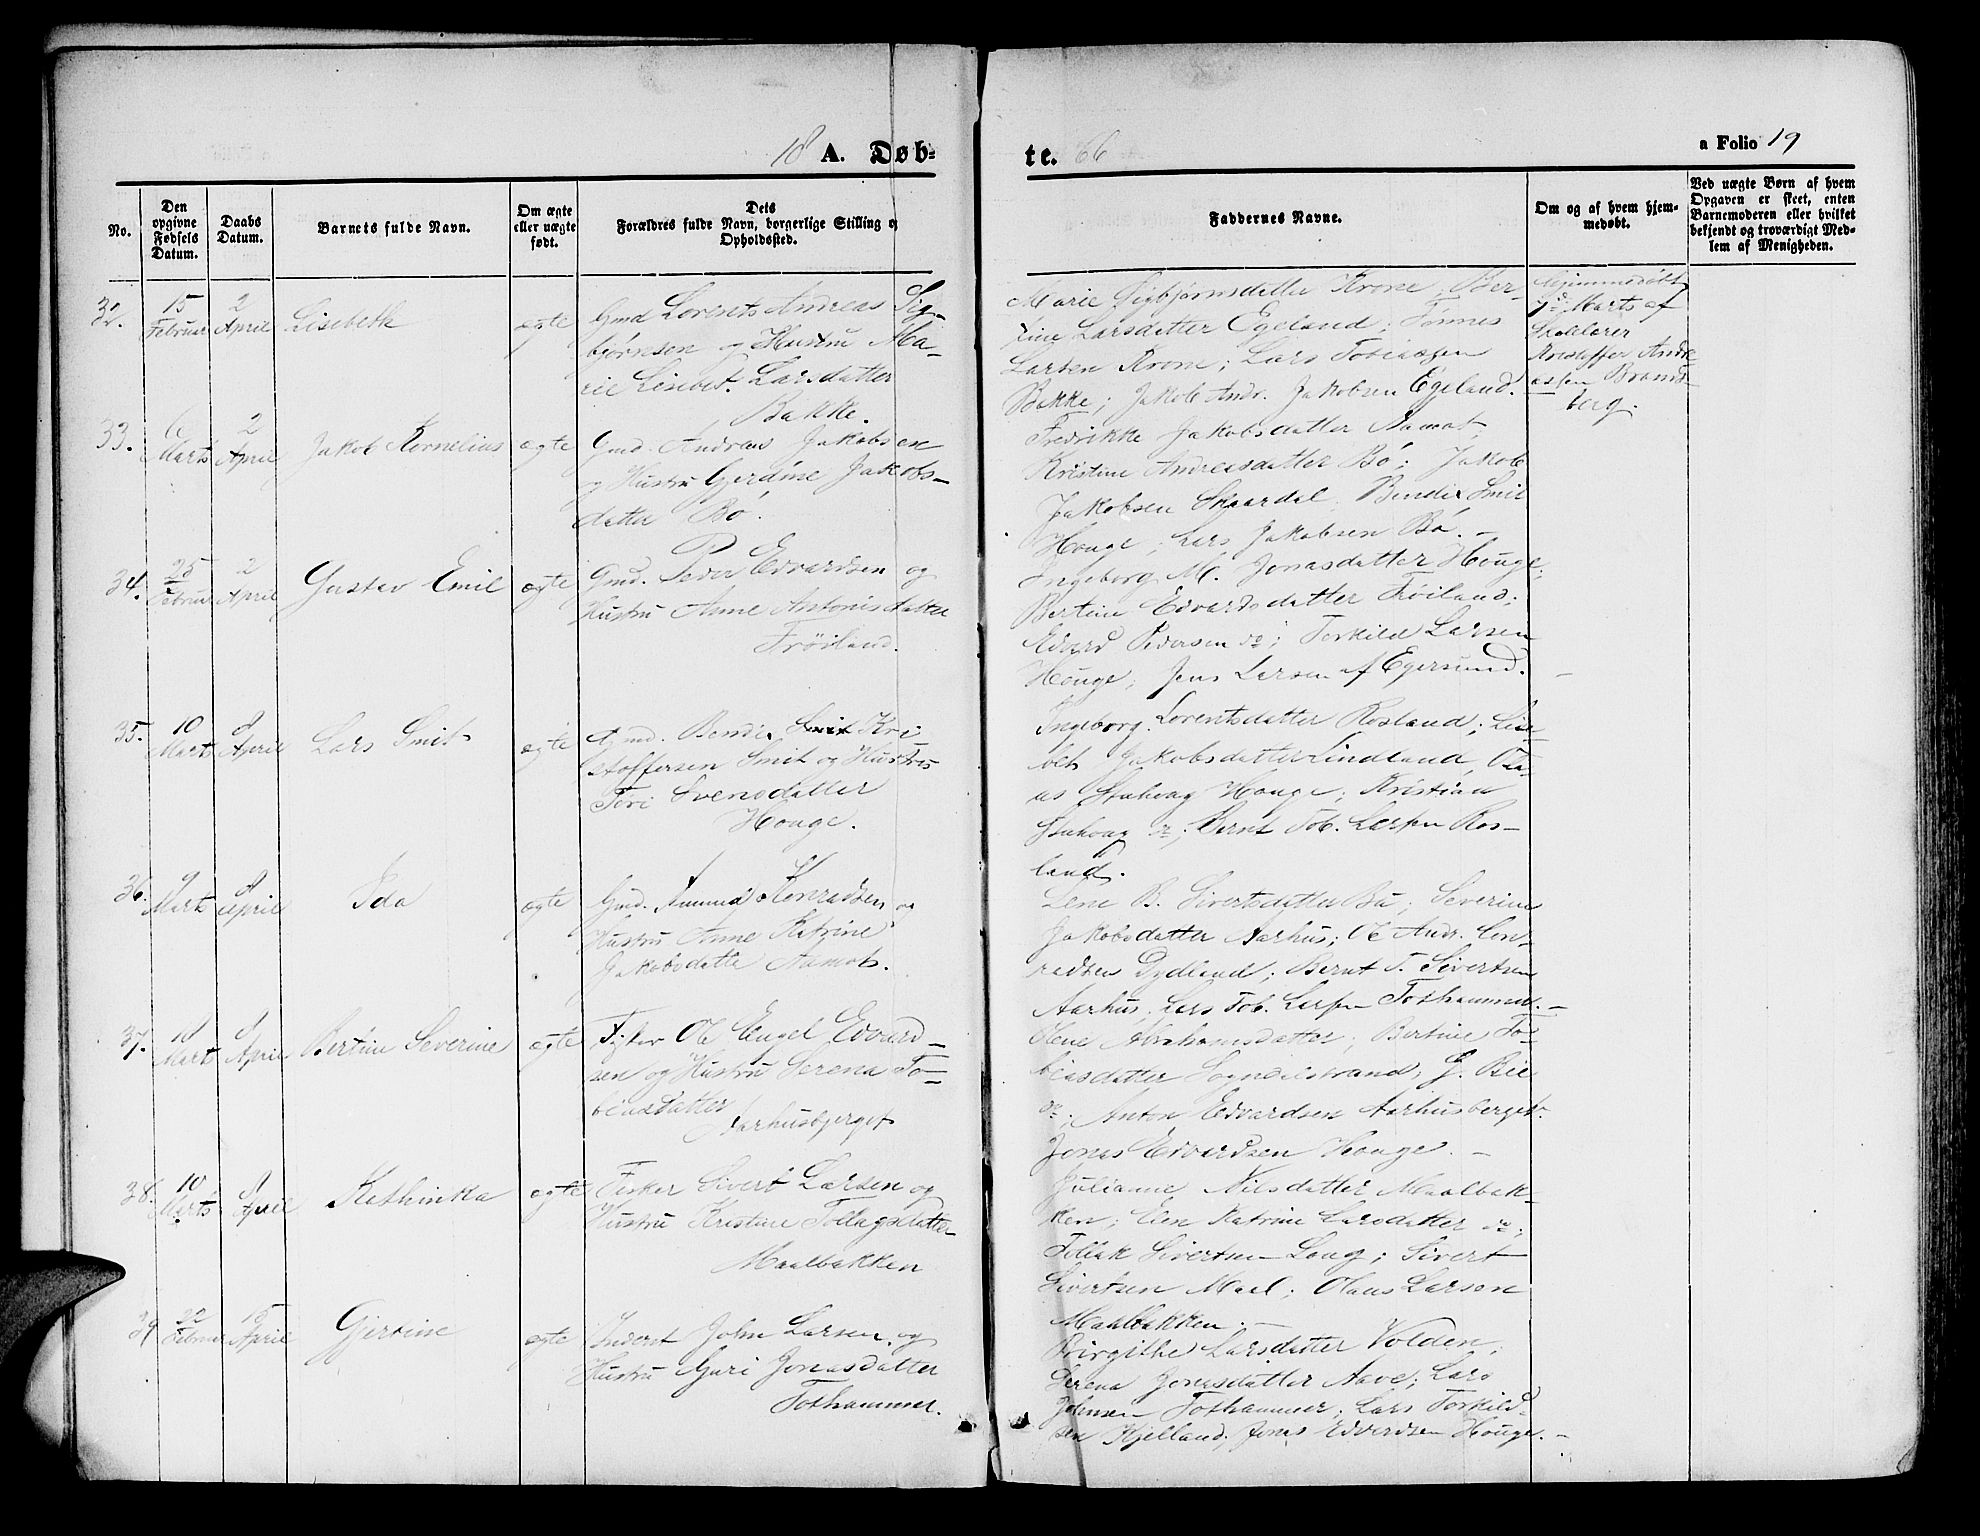 18 A. Døb-
te. 66
a Folio 19
No.
Den
opgivne
Fødsels
Datum.
Daabs
Datum.
Barnets fulde Navn.
Om ægte
eller uægte
født.
Dets
Forældres fulde Navn, borgerlige Stilling o
Opholdssted.
Faddernes Navne.
Om og af hvem hjem-
medøbt.
Ved uægte Børn af hvem
Opgaven er skeet, enten
Barnemoderen eller hvilket
bekjendt og troværdigt Med-
lem af Menigheden.
32.
15
Februar
2
April
Lisebeth
ægte
Gmd Lorents Andreas Sig-
bjørnsen og Hustru Ma-
rie Lisebet. Larsdatter
Bakke.
Marie Sigbjørnsdatter Krone; Ber-
tine Larsdatter Egeland; Tønnes
Larsen Krone; Lars Tobiassen
Bakke; Jakob Andr. Jakobsen Egeland.
Hjemmedøbt
Marts af
Skolelærer
Kristoffer Andre
assen Brands-
berg.
33.
6
Marts
2
April
Jakob Kornelius
ægte
Gmd. Andreas Jakobsen
og Hustru Gerdine Jakobs-
datter Bö.
Fredrikke Jakobsdatter Aamot,
Kristine Andreasdatter Bö; Jakob
Jakobsen Skaardal; Bendix Smit
Houge; Lars Jakobsen Bö. -
34.
25
Februar
2
April
Gustav Emil
ægte
Gmd. Peder Edvardsen og
Hustru Anne Antonisdatter
Fröiland.
Ingeborg M. Jonasdatter Houge;
Bertine Edvardsdatter Fröiland;
Edvard Pedersen do; Torkild Larsen
Houge; Jens Larsen af Egersund. -
35.
10
Marts
8
April
Lars Smit
ægte
Gmd. Bendix Smit Kri
stoffersen Smit og Hustru
Tori Svensdatter
Houge.
Ingeborg Lorentsdatter Rosland; Lise-
bet Jakobsdatter Lindland,
Stuhaug Houge; Kristian
Stuhaug do; Bernt Tob. Larsen Ros-
land.
36.
9
Marts
8
April
Ida
ægte
Gmd. Amund Konradsen og
Hustru Anne Katrine
Jakobsdatte Aamot.
Lene B. Sivertsdatter Bu; Severine
Jakobsdatter Aarhus; Ole Andr. Con-
radsen Dydland; Bernt T. Sivertsen
Aarhus, Lars Tob. Larsen Tothammer. -
37.
18
Mart
8
April
Bertine Severine
ægte
Fisker Ole Engel Edvard-
sen og Hustru Serena To-
biasdatter
Aarhusbjerget
Olene Abrahamsdatter; Bertine To-
biasdatter Sogndalstrand; G. Bie
do; Anton Edvardsen Aarhusberget.
Jonas Edvardsen Houge. -
38.
10
Marts
8
April
Kathinka
ægte
Fisker Sivert Larsen og
Hustru Kristine Tollagsdatter
Maalbakken
Julianne Nilsdatter Maalbak-
ken; Elen Katrine Larsdatter do;
Tollak Sivertsen Laug; Sivert
Sivertsen Mael; Olaus Larsen
Maalbakken. -
39
22
Februar
15
April
Gjertine
ægte
Inderst John Larsen og
Hustru Guri Jonasdatter
Tothammer.
Birgithe Larsdatter Volden;
Serena Jonasdatter Aave; Lars
Johnsen Tothammer; Lars Torkild-
sen Kjelland; Jonas Edvardsen Houge. -